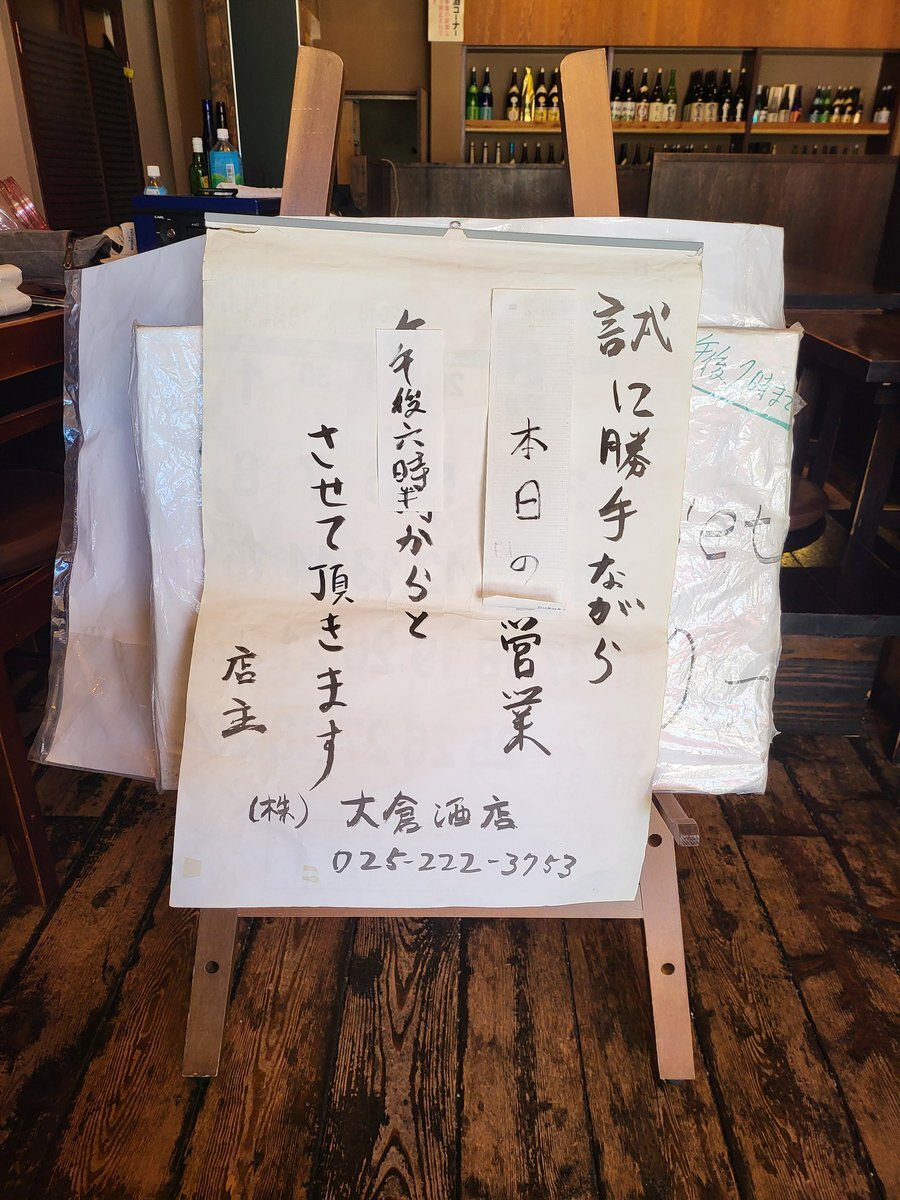 試に勝手ながら
本日の営業
午後六時半からと
させて頂きます
店主
(株) 大倉酒店
025-222-3753
午後7時まで
et
コーナー